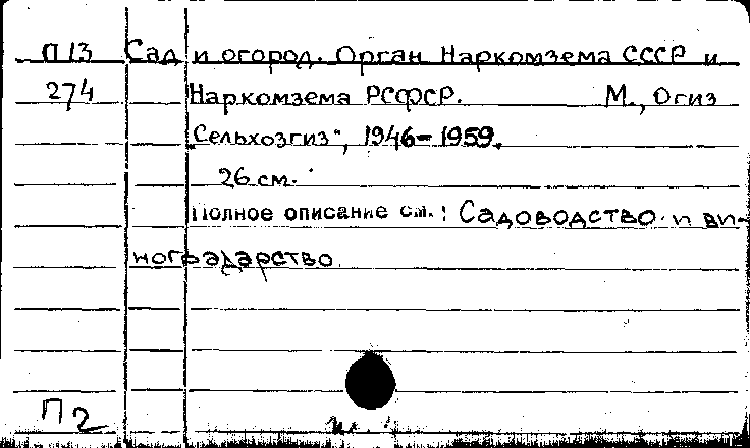 П13 Сад и огород. Орган Наркомзема СССР и
274 Наркомзема РСФСР. М., Огиз
„Сельхозгиз", 1946-1959.
26 см.
Полное описание см.: Садоводство и ви-
ноградарство.
П2